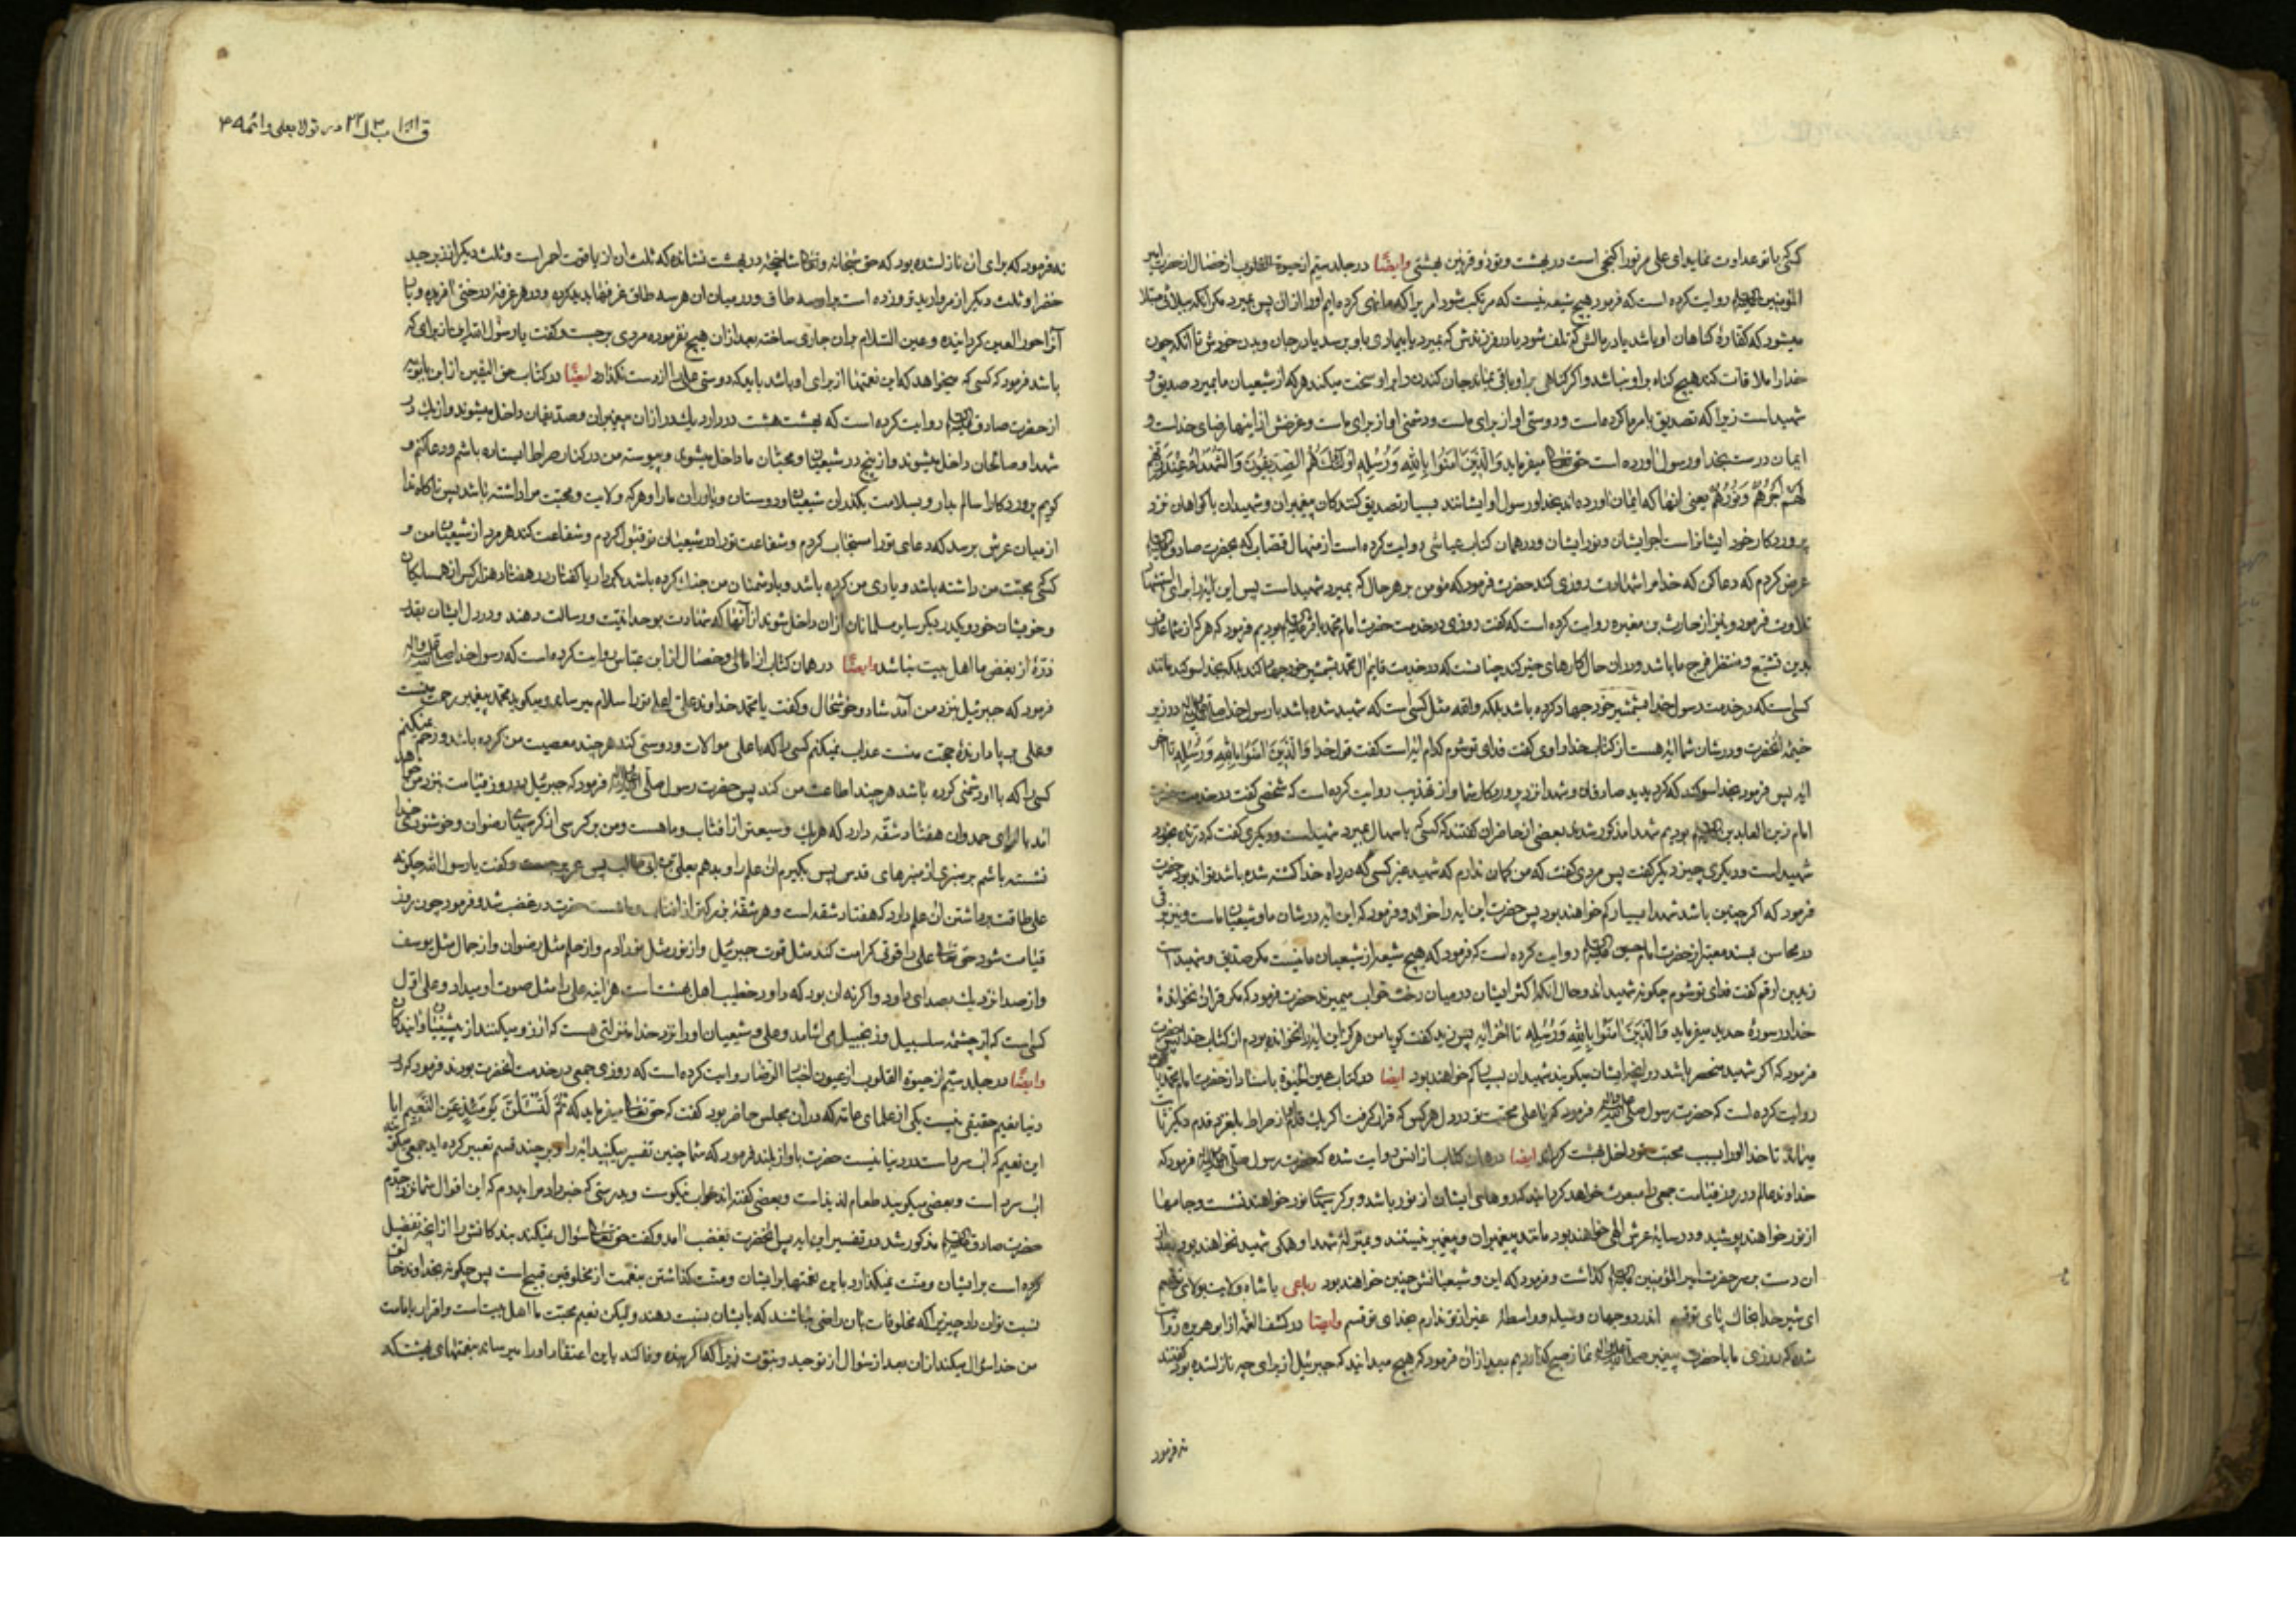 کسی با تو عداوت نماید ای علی مر تو را کنجی است در بهشت و توئی ذو قرنین بهشتی وایضًا در جلد سیّم از حیوة القلوب از خصال از حضرت امیر
المؤمنین روایت کرده است که فرمود هیچ شیعه نیست که مرتکب شود امریرا که ما نهی کرده‌ایم او را از آن پس بمیرد مگر آنکه ببلائی مبتلا
میشود که کفارۀ کناهان او باشد یا در مالش که تلف شود یا در فرزندش که بمیرد یا بیماری باو برسد یا در جان و بدن خودش تا آنکه چون
خدا را ملاقات کند هیچ کناه بر او نباشد و اکر کناهی بر او باقی بماند جان کندن را بر او سخت میکند هر که از شیعیان ما بمیرد صدیق و
شهید است زیرا که تصدیق بامر ما کرده است و دوستی او از برای ماست و دشمنی او از برای ماست و غرضش از اینها رضای خداست و
ایمان درست بخدا و رسول اورده است حق تعالی میفرماید وَالَّذِينَ امَنُوا بِاللّٰهِ وَرُسُلِهِ اُولٰئِكَ هُمُ الصِّدِّيقُونَ وَالشُّهَدَاءُ عِنْدَ رَبِّهِمْ
لَهُمْ اَجْرُهُمْ وَنُورُهُمْ یعنی انها که ایمان اورده اند بخدا و رسول او ایشانند بسیار تصدیق کنندکان پیغمبران و شهیدان یا کواهان نزد
پروردکار خود ایشانراست اجر ایشان و نور ایشان و در همان کتاب عیاشی روایت کرده است از منهال قصاب که بحضرت صادق
عرض کردم که دعا کن که خدا مرا شهادت روزی کند حضرت فرمود که مؤمن بر هر حال که بمیرد شهید است پس این ایه را برای استشهاد
تلاوت فرمود و نیز از حارث بن مغیره روایت کرده است که کفت روزی در خدمت حضرت امام محمد باقر بودیم فرمود که هر که از شما عارف
بدین تشیع و منتظر فرج ما باشد و در ان حال کارهای خیر کند چنانست که در خدمت قایم ال محمد بشمشیر خود جهاد کند بلکه بخدا سوکند مانند
کسی است که در خدمت رسول خدا بشمشیر خود جهاد کرده باشد بلکه والله مثل کسی است که شهید شده باشد با رسول خدا در زیر
خیمه انحضرت و در شان شما ایه هست از کتاب خدا راوی کفت فدای تو شوم کدام ایه است کفت قول خدا وَالَّذِينَ امَنُوا بِاللّٰهِ وَرُسُلِهِ تا اخر
ایه پس فرمود بخدا سوکند که کردیدید صادقان و شهدا نزد پروردکار شما و از تهذیب روایت کرده است که شخصی کفت در خدمت حضرت
امام زین العابدین بودیم شهدا مذکور شدند بعضی از حاضران کفتند که کسی که باسهال بمیرد شهید است و دیکری کفت که درنده بخورد
شهید است و دیکری چیز دیکر کفت پس مردی کفت که من کمان ندارم که شهید غیر کسی که در راه خدا کشته شده باشد تواند بود حضرت
فرمود که اکر چنین باشد شهدا بسیار کم خواهند بود پس حضرت این ایه را خواند و فرمود که این ایه در شان ما و شیعیان ماست و نیز برقی
در محاسن بسند معتبر از حضرت امام حسین روایت کرده است که فرمود که هیچ شیعه از شیعیان ما نیست مکر صدیق و شهید است
زید بن ارقم کفت فدای تو شوم چکونه شهید اند و حال انکه اکثر ایشان در میان رخت خواب میمیرند حضرت فرمود که مکر قران نخواندۀ
خدا در سورۀ حدید میفرماید وَالَّذِينَ امَنُوا بِاللّٰهِ وَرُسُلِهِ تا اخر ایه پس زید کفت کویا من هرکز این ایه را نخوانده بودم از کتاب خدا پس حضرت
فرمود که اکر شهید منحصر باشد در انچه ایشان میکویند شهیدان بسیار کم خواهند بود ایضا در کتاب عین الحیوة باسناد از حضرت امام محمد باقر
روایت کرده است که حضرت رسول فرمود که یا علی محبت تو در دل هر کس که قرار کرفت اکر یک قدم از صراط بلغزد قدم دیکر ثابت
میماند تا خدا او را بسبب محبت تو داخل بهشت کرداند ایضا در همان کتاب از انس روایت شده که حضرت رسول فرمود که
خداوند عالم در روز قیامت جمعی را مبعوث خواهد کردانید که روهای ایشان از نور باشد و بر کرسیهای نور خواهند نشست و جامها
از نور خواهند پوشید و در سایۀ عرش الهی خواهند بود مانند پیغمبران و پیغمبر نیستند و بمنزلۀ شهدا و همکی شهید نخواهند بود بعد از
ان دست بر سر حضرت امیر المؤمنین کذاشت و فرمود که این و شیعیانش چنین خواهند بود رباعی یا شاه ولایت بولای تو قسم
ای شیر خدا بخاک پای تو قسم اندر دو جهان وسیله و واسطۀ غیر از تو ندارم بخدای تو قسم وایضا در کشف الغمه از ابو هریره روایت
شده که روزی ما با حضرت پیغمبر نماز صبح کذاردیم بعد از ان فرمود که هیچ میدانید که جبرئیل از برای چه نازل شده بود کفتند
نه فرمود
ق ااا ب ۳ ل ۲۲ در تولا بعلی و ائمه ۴۹
نه فرمود که برای ان نازل شده بود که حق سبحانه و تعالی شاخۀ در بهشت نشانده که ثلث ان از یاقوت احمر است و ثلث دیکر از زبرجد
خضرا و ثلث دیکر از مروارید تر و زده است بر او سه طاق و در میان ان هر سه طاق غرفها پدید کرده و در هر غرفۀ درختی افریده و بار
آنرا حور العین کردانیده و عین السّلام بران جاری ساخته بعد از ان هیچ نفرموده مردی برجست و کفت یا رسول الله ان از برای که
باشد فرمود که کسی که میخواهد که این نعمتها از برای او باشد باید که دوستی علی را از دست نکذارد ایضًا در کتاب حق الیقین از ابن بابویه
از حضرت صادق روایت کرده است که بهشت هشت در دارد یک در از ان پیغمبران و صدیقان داخل میشوند و از یک در
شهدا و صالحان داخل میشوند و از پنج در شیعیان و محبان ما داخل میشوند و پیوسته من در کنار صراط ایستاده باشم و دعا کنم و
کویم پروردکارا سالم بدار و بسلامت بکذران شیعیان و دوستان و یاوران مارا و هر که ولایت و محبت مرا داشته باشد پس ناکاه ندا
از میان عرش برسد که دعای تو را مستجاب کردم و شفاعت تو را در شیعیان تو قبول کردم و شفاعت کند هر مرد از شیعیان من و
کسی که محبّت من داشته باشد و یاری من کرده باشد و با دشمنان من جنک کرده باشد بکردار یا کفتار در هفتاد هزار کس از همسایکان
و خویشان خود و یکدر دیکر سایر مسلمانان از ان داخل شوند از آنها که شهادت بوحدانیّت و رسالت دهند و در دل ایشان بقدر
ذرّۀ از بغض ما اهل بیت نباشد وایضًا در همان کتاب از امالی و خصال از ابن عباس روایت کرده است که رسول خدا
فرمود که جبرئیل بنزد من آمد شاد و خوشحال و کفت یا محمد خداوند علی اعلی تو را سلام میرساند و میکوید محمد پیغمبر رحمت منست
و علی بر پا دارندۀ حجت منست عذاب نمیکنم کسی را که با علی موالات و دوستی کند هر چند معصیت من کرده باشد و رحم نمیکنم
کسی را که با او دشمنی کرده باشد هر چند اطاعت من کند پس حضرت رسول فرمود که جبرئیل در روز قیامت بنزد من خواهد
امد با لوای حمد و ان هفتاد شقّه دارد که هر یک وسیعتر از افتاب و ماهست و من بر کرسی از کرسیهای رضوان و خوشنودی خدا
نشسته باشم بر منبری از منبرهای قدس پس بکیرم ان علم را و بدهم بعلی بن ابی طالب پس عمر برجست و کفت یا رسول الله چکونه
علی طاقت برداشتن ان علم دارد که هفتاد شقه است و هر شقّه بزرکتر از افتاب و ماهست حضرت در غضب شد و فرمود چون روز
قیامت شود حق تعالی علی را قوتی کرامت کند مثل قوت جبرئیل و از نور مثل نور ادم و از حلم مثل رضوان و از جمال مثل یوسف
و از صدا نزدیک بصدای داود و اکر نه ان بود که داود خطیب اهل بهشت است هر اینه علی را مثل صوت او میداد و علی اول
کسی است که از چشمۀ سلسبیل و زنجبیل می اشامد و علی و شیعیان او را نزد خدا منزلتی هست که ارزو میکنند از پیشینیان و ایندکان
وایضًا در جلد سیّم از حیوة القلوب از عیون اخبار الرّضا روایت کرده است که روزی جمعی در خدمت انحضرت بودند فرمود که در
دنیا نعیم حقیقی نیست یکی از علمای عامّه که در ان مجلس حاضر بود کفت که حق تعالی میفرماید که ثُمَّ لَتُسْئَلُنَّ يَوْمَئِذٍ عَنِ النَّعِيمِ ایا
این نعیم که آب سرد است در دنیا نیست حضرت باواز بلند فرمود که شما چنین تفسیر میکنید ایه را و بر چند قسم تعبیر کرده اید جمعی میکویند
اب سرد است و بعضی میکویند طعام لذیذ است و بعضی کفته‌اند خواب نیکوست و بدرستی که خبر داد مرا پدرم که این اقوال شما نزد جدّم
حضرت صادق مذکور شد در تفسیر این ایه پس انحضرت بغضب امد و کفت حق تعالی سؤال نمیکند بندکانش را از انچه تفضل
کرده است بر ایشان و منّت نمیکذارد باین نعمتها بر ایشان و منّت کذاشتن بنعمت از مخلوقین قبیح است پس چکونه بخداوند خالق
نسبت توان داد چیزیرا که مخلوقات بان راضی نباشند که بایشان نسبت دهند ولیکن نعیم محبّت ما اهل بیت است و اقرار بامامت
من خدا سؤال میکند از ان بعد از سؤال از توحید و نبوّت زیرا که اکر بنده وفا کند باین اعتقاد او را میرساند بنعمتهای بهشت که